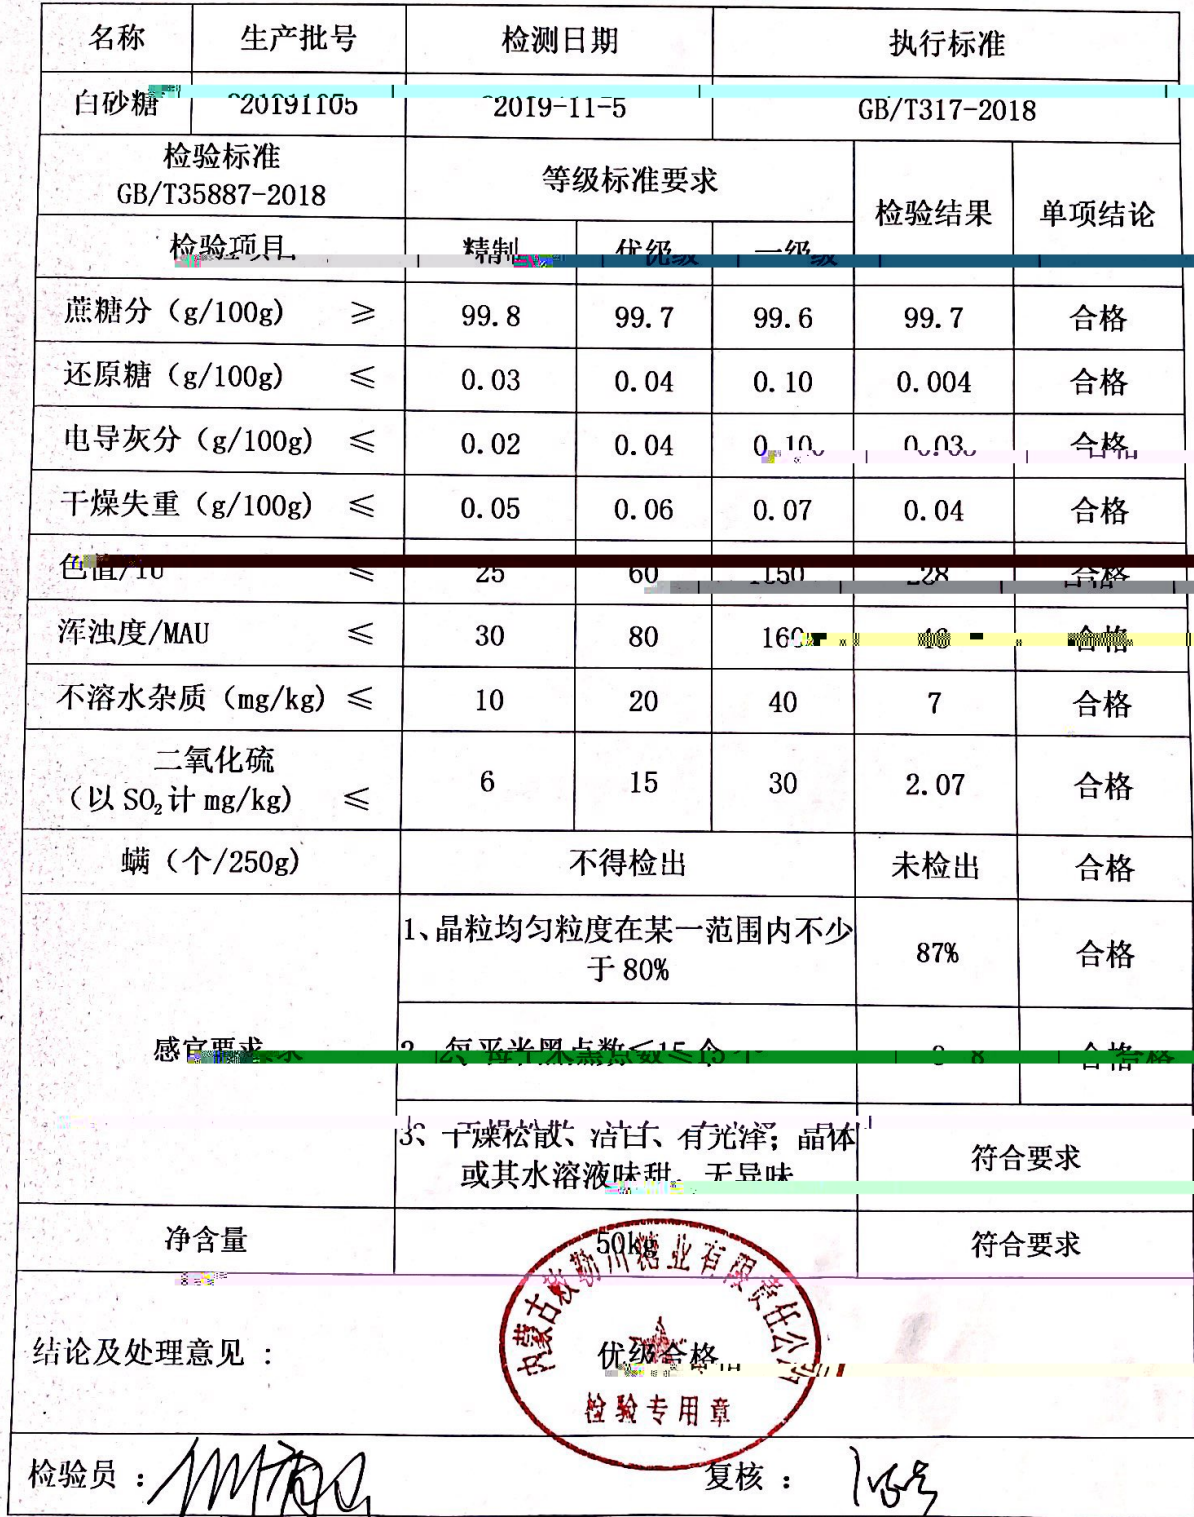 名称 生产批号 检测日期 执行标准
白砂糖 20191105 2019-11-5 GB/T317-2018
检验标准
GB/T35887-2018
等级标准要求 检验结果 单项结论
检验项目 精制 优级 一级
蔗糖分（g/100g） ≥ 99.8 99.7 99.6 99.7 合格
还原糖（g/100g） ≤ 0.03 0.04 0.10 0.004 合格
电导灰分（g/100g） ≤ 0.02 0.04 0.10 0.03 合格
干燥失重（g/100g） ≤ 0.05 0.06 0.07 0.04 合格
色值/IU ≤ 25 60 150 28 合格
浑浊度/MAU ≤ 30 80 160 46 合格
不溶水杂质（mg/kg） ≤ 10 20 40 7 合格
二氧化硫
（以 SO₂计 mg/kg） ≤ 6 15 30 2.07 合格
螨（个/250g） 不得检出 未检出 合格
感官要求
1、晶粒均匀粒度在某一范围内不少
于 80%
87% 合格
2、每平米黑点数≤15 个 8 合格
3、干燥松散、洁白、有光泽；晶体
或其水溶液味甜、无异味
符合要求
净含量 50kg 符合要求
内蒙古敕勒川糖业有限责任公司
结论及处理意见： 优级合格
检验专用章
检验员： 复核：